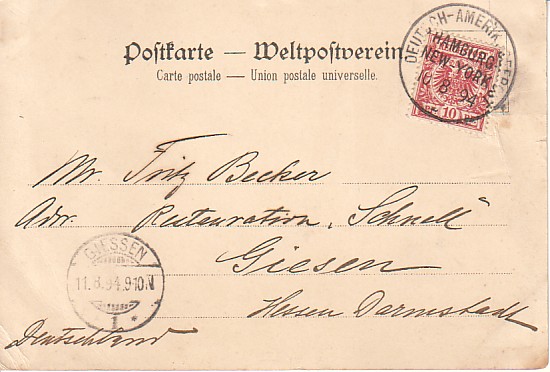 Postkarte — Weltpostverein
Carte postale — Union postale universelle.
DEUTSCH-AMERIK
HAMBURG
NEW-YORK
10
Mr. Fritz Becker
Adr. Restauration "Schnell"
Giesen
Hessen Darmstadt
Deutschland
GIESSEN
11.8.94.9-10N
1.*